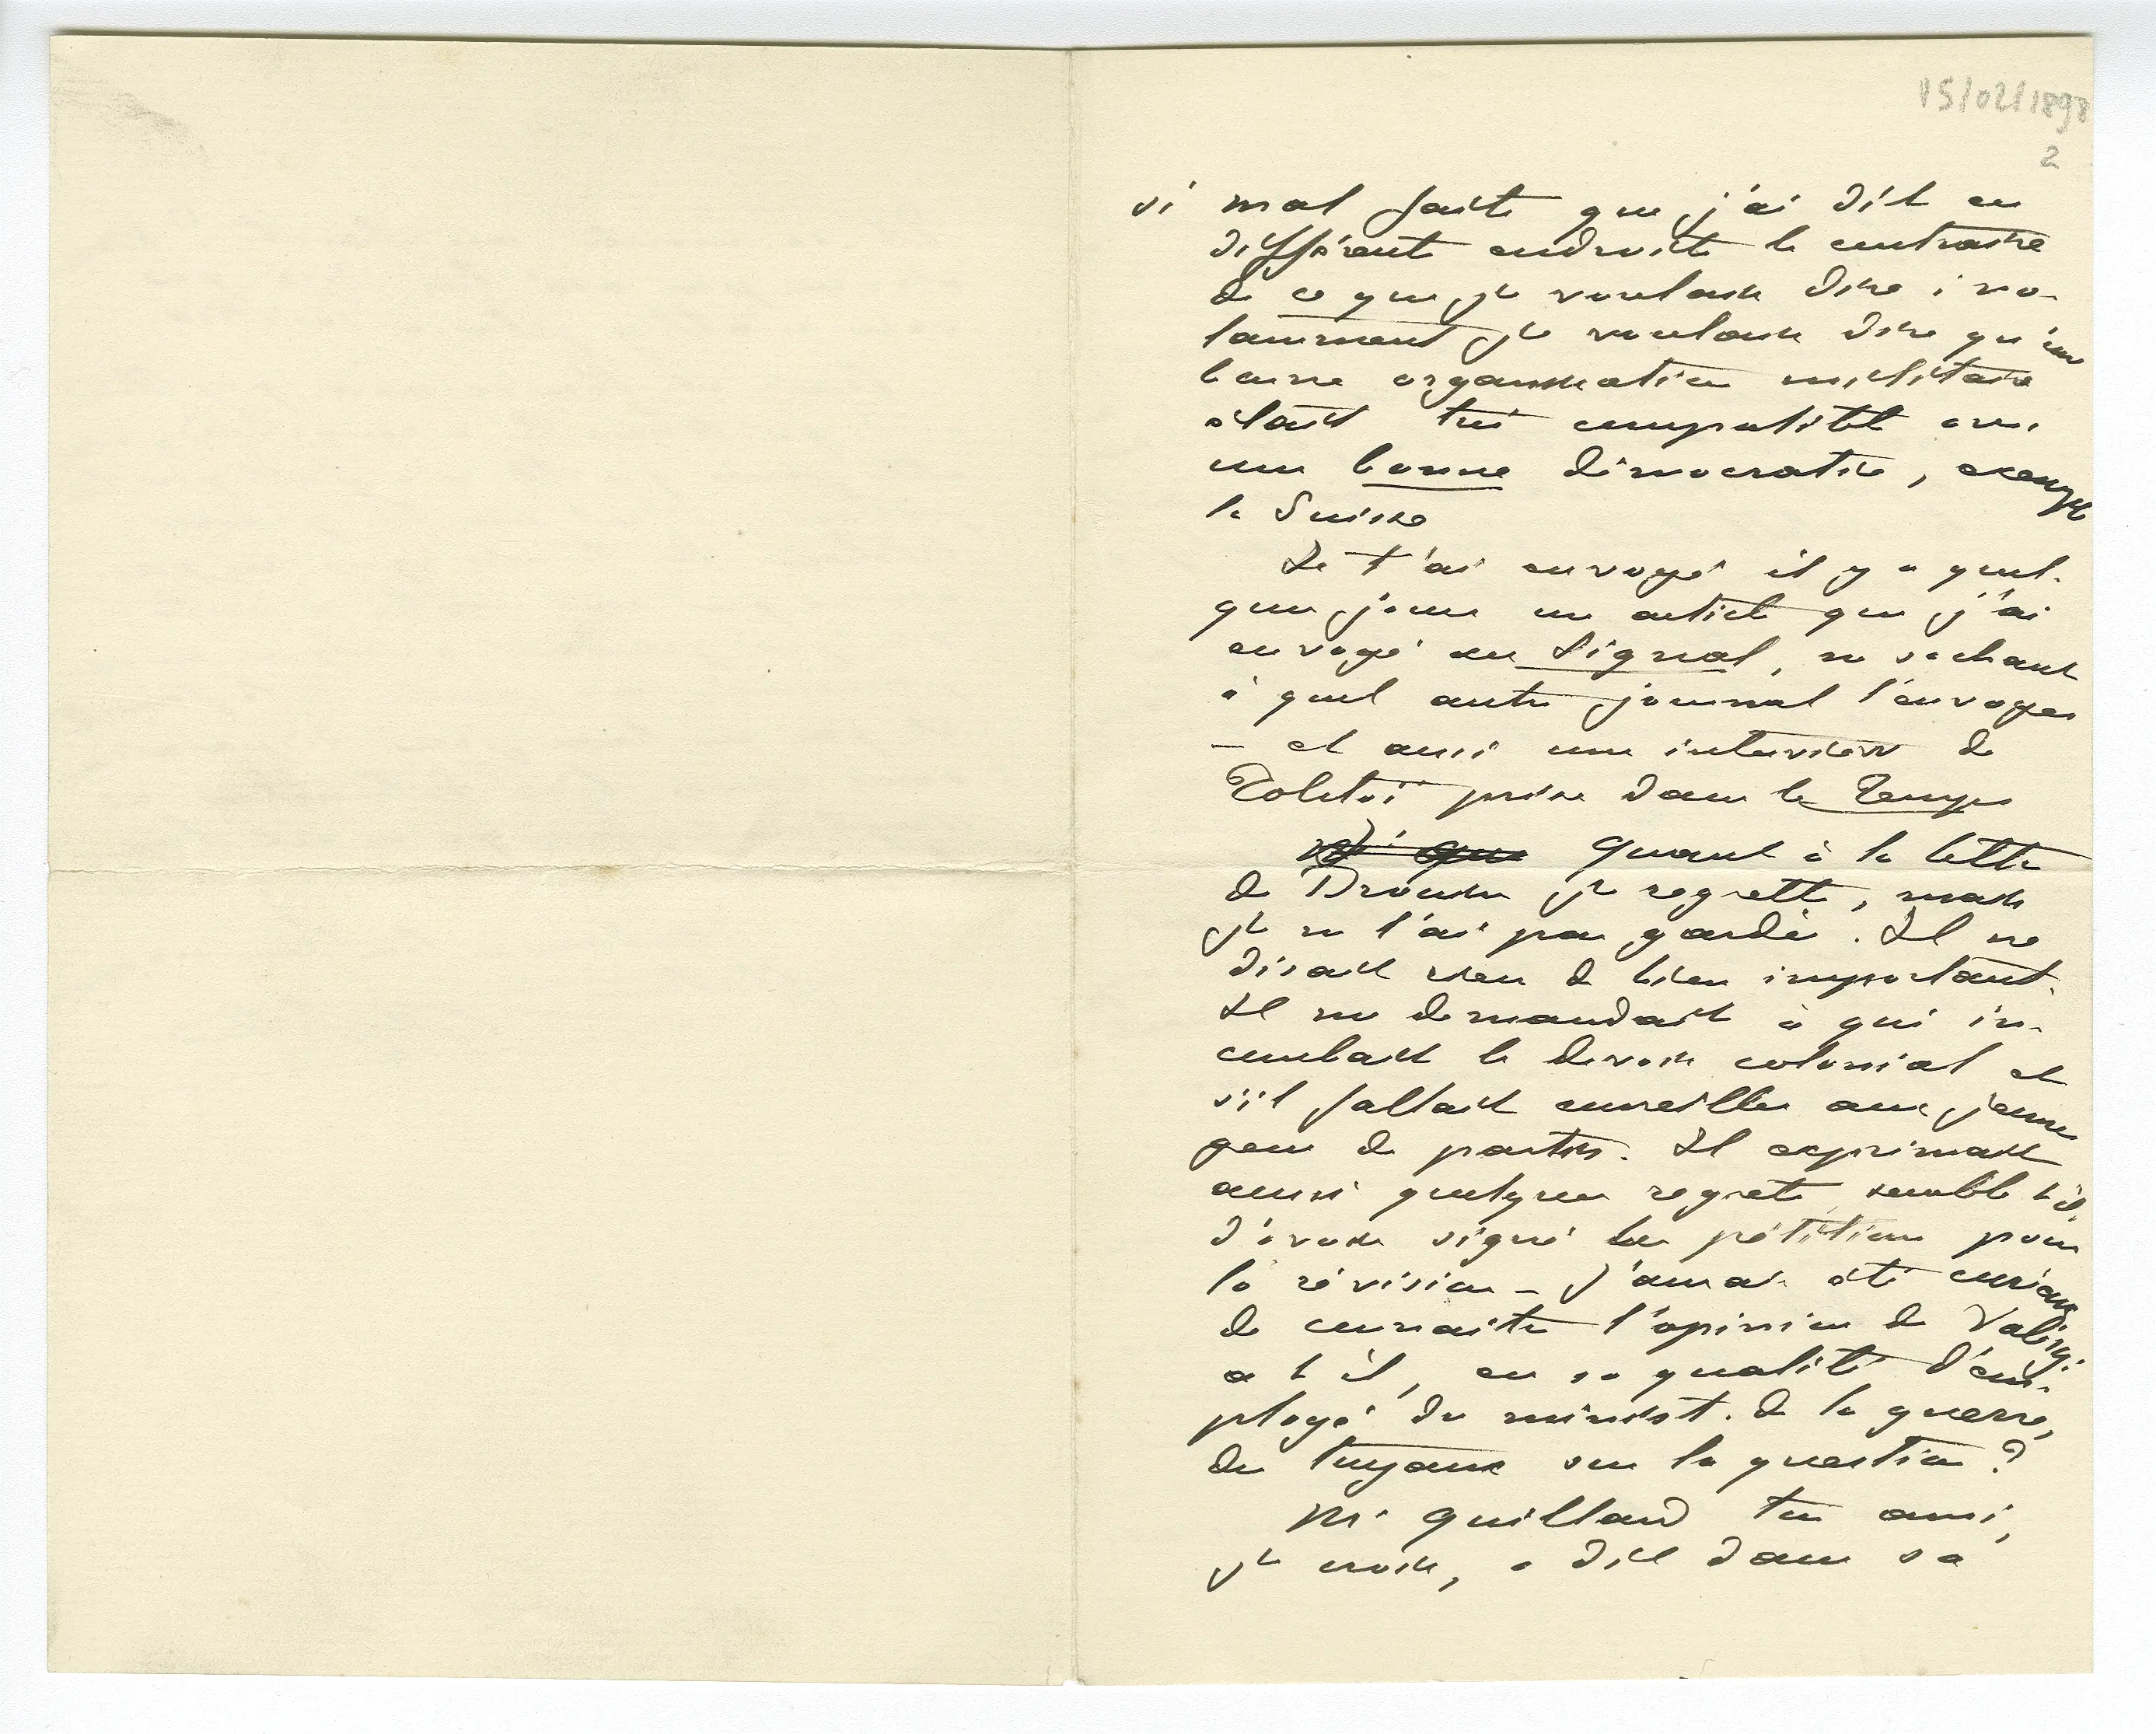 15/02/1898
2
si mal faite que j'ai dit en
différents endroits le contraire
de ce que je voulais dire ; no-
tamment je voulais dire qu'une
bonne organisation militaire
était très compatible avec
une bonne démocratie, exemple
la Suisse
Je t'ai envoyé il y a quel-
ques jours un article que j'ai
envoyé au Signal, ne sachant
à quel autre journal l'envoyer
– et aussi une interview de
Tolstoï prise dans le Temps
Quant à la lettre
de Drouin je regrette, mais
je ne l'ai pas gardée. Il ne
disait rien de bien important.
Il me demandait à qui in-
combait le devoir colonial et
s'il fallait conseiller aux jeunes
gens de partir. Il exprimait
aussi quelques regrets, semble t'il,
d'avoir signé les pétitions pour
la révision – J'aurais été curieux
de connaitre l'opinion de Valéry.
a t il, en sa qualité d'em-
ployé du minist. de la guerre,
des tuyaux sur la question ?
Mr Quillard ton ami,
je crois, a dit dans sa